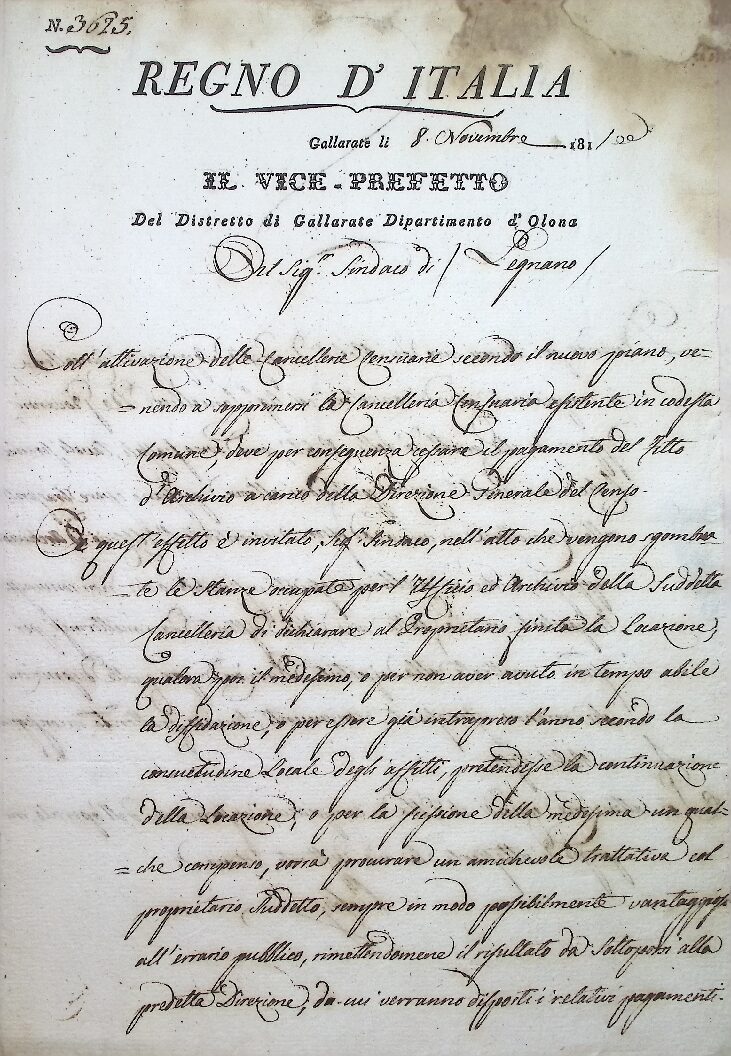 N. 3625.
REGNO D' ITALIA
Gallarate li 8. Novembre 1811
IL VICE-PREFETTO
Del Distretto di Gallarate Dipartimento d' Olona
Al Sig.r Sindaco di / Legnano /
Coll'attivazione delle Cancellerie Censuarie secondo il nuovo piano, ve=
=nendo a sopprimersi la Cancelleria Censuaria esistente in codesta
Comune, deve per conseguenza cessare il pagamento del Fitto
d'Archivio a carico della Direzione Generale del Censo.
A quest'effetto è invitato, Sig.r Sindaco, nell'atto che vengono sgombra=
=te le Stanze occupate per l'Ufficio ed Archivio della Suddetta
Cancelleria di dichiarare al Proprietario finita la Locazione,
qualora poi il medesimo, o per non aver avuto in tempo abile
la diffidazione, o per essere già intrapreso l'anno secondo la
consuetudine Locale degli affitti, pretendesse la continuazione
della Locazione, o per la scissione della medesima un qual=
=che compenso, vorrà procurare un amichevole trattativa col
proprietario Suddetto, sempre in modo possibilmente vantaggioso
all'errario pubblico, rimettendomene il risultato da Sottoporsi alla
predetta Direzione, da cui verranno disposti i relativi pagamenti.